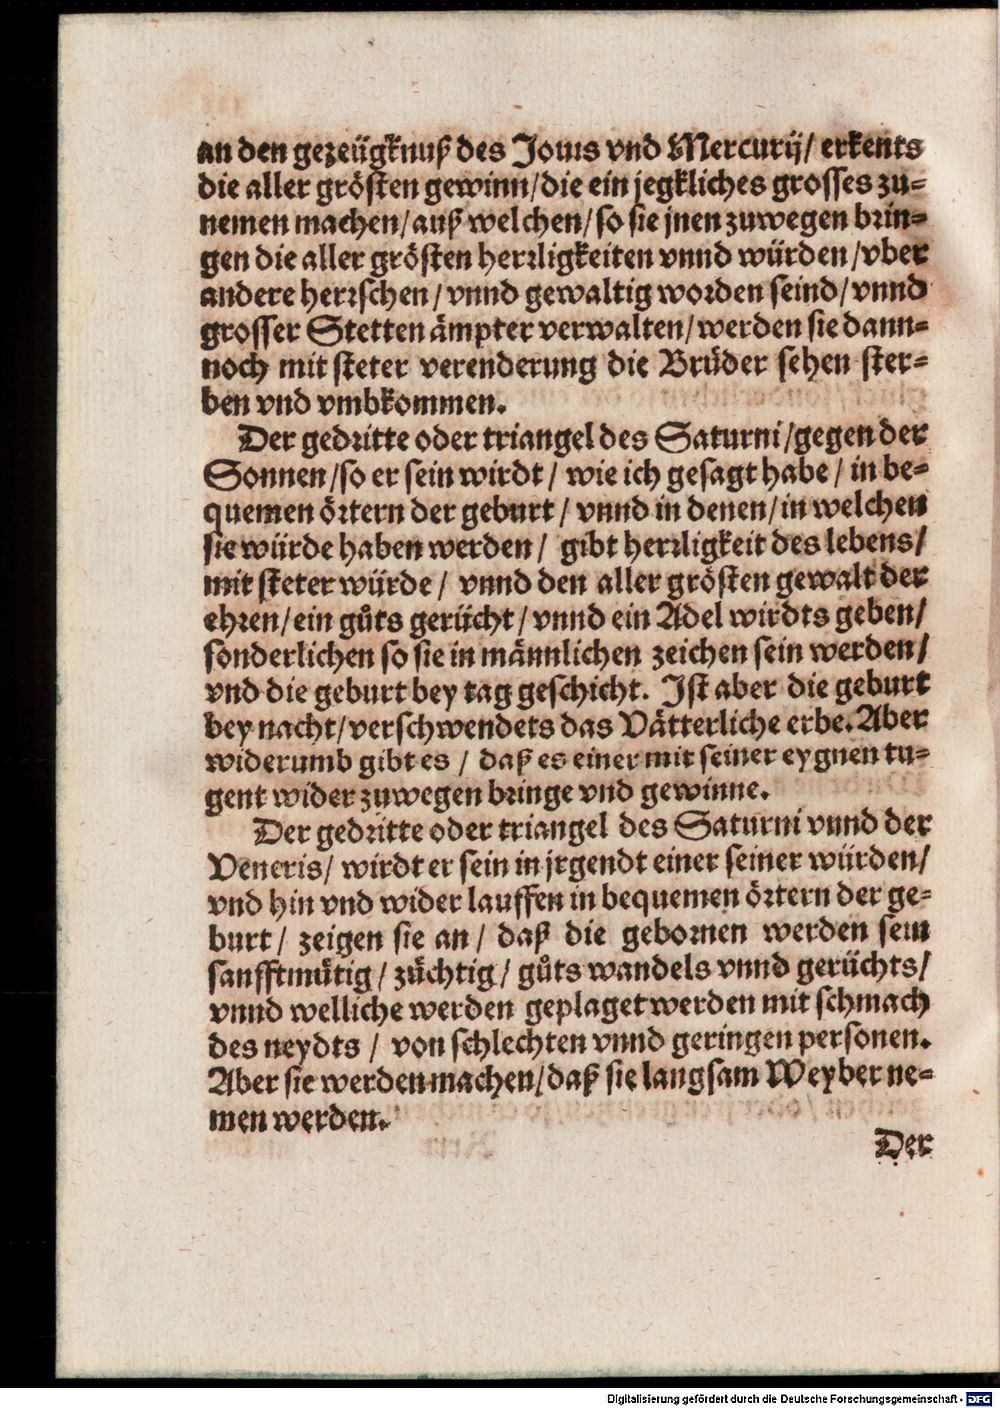 an den gezeügknuß des Jouis vnd Mercurij/ erkents
die aller grösten gewinn/die ein jegkliches grosses zu-
nemen machen/auß welchen/so sie jnen zuwegen brin-
gen die aller grösten herrligkeiten vnnd würden/vber
andere herrschen/vnnd gewaltig worden seind/vnnd
grosser Stetten ämpter verwalten/werden sie dann-
noch mit steter verenderung die Brüder sehen ster-
ben vnd vmbkommen.
Der gedritte oder triangel des Saturni/gegen der
Sonnen/so er sein wirdt/ wie ich gesagt habe/ in be-
quemen örtern der geburt/ vnnd in denen/in welchen
sie würde haben werden/ gibt herrligkeit des lebens/
mit steter würde/ vnnd den aller grösten gewalt der
ehren/ein gůts gerücht/vnnd ein Adel wirdts geben/
sonderlichen so sie in männlichen zeichen sein werden/
vnd die geburt bey tag geschicht. Ist aber die geburt
bey nacht/verschwendets das Vätterliche erbe. Aber
widerumb gibt es/ daß es einer mit seiner eygnen tu-
gent wider zuwegen bringe vnd gewinne.
Der gedritte oder triangel des Saturni vnnd der
Veneris/ wirdt er sein in jrgendt einer seiner würden/
vnd hin vnd wider lauffen in bequemen örtern der ge-
burt/ zeigen sie an/ daß die gebornen werden sein
sanfftmütig/ züchtig/ gůts wandels vnnd gerüchts/
vnnd welliche werden geplaget werden mit schmach
des neydts/ von schlechten vnnd geringen personen.
Aber sie werden machen/daß sie langsam Weyber ne-
men werden.
Der
Digitalisierung gefördert durch die Deutsche Forschungsgemeinschaft - DFG